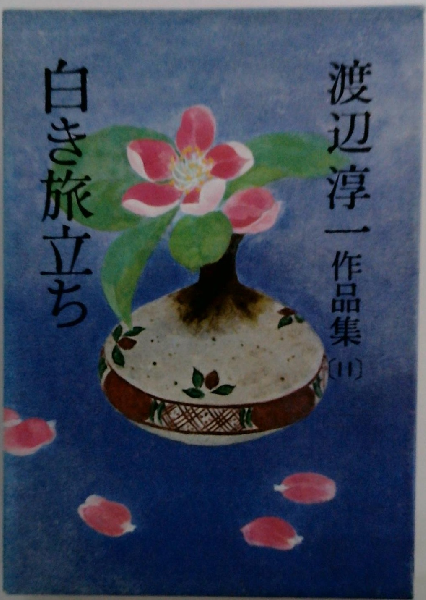 渡辺淳一作品集〔11〕
白き旅立ち